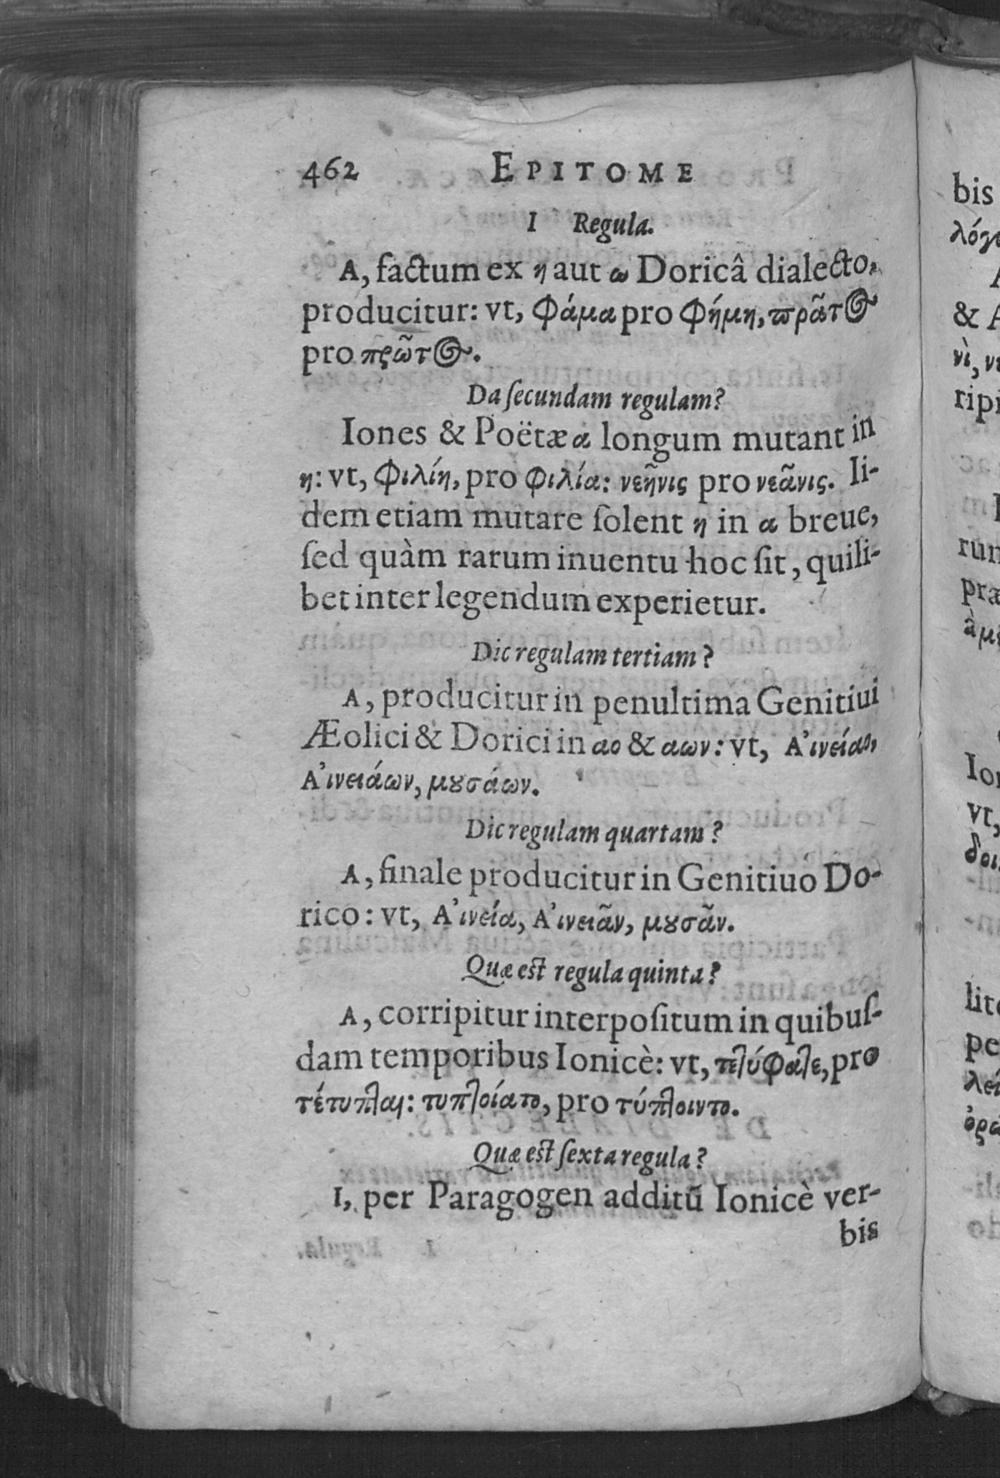 462 EPITOME
I Regula.
A, factum ex η aut ω Doricâ dialecto,
producitur: vt, φάμα pro φήμη, πρᾶτος
pro πρῶτος.
Da ſecundam regulam?
Iones & Poëtæ α longum mutant in
η: vt, φιλίη, pro φιλία: νεῆνις pro νεᾶνις. Ii-
dem etiam mutare ſolent η in α breue,
ſed quàm rarum inuentu hoc ſit, quili-
bet inter legendum experietur.
Dic regulam tertiam?
A, producitur in penultima Genitiui
Æolici & Dorici in αο & αων: vt, Α᾿ινείαο,
Α᾿ινειάων, μȣσάων.
Dic regulam quartam?
A, finale producitur in Genitiuo Do-
rico: vt, Α᾿ινεία, Α᾿ινειᾶν, μȣσᾶν.
Quæ est regula quinta?
A, corripitur interpoſitum in quibuſ-
dam temporibus Ionicè: vt, τετύφατε, pro
τέτυπται: τυπτοίατο, pro τύπτοιντο.
Quæ est ſexta regula?
I, per Paragogen additū Ionicè ver-
bis
bis
λόγ
& A
νὶ, νὶ
ripi
run
præ
ἀμ
Ion
vt,
δοι
lite
pe
λεί
ὁρω